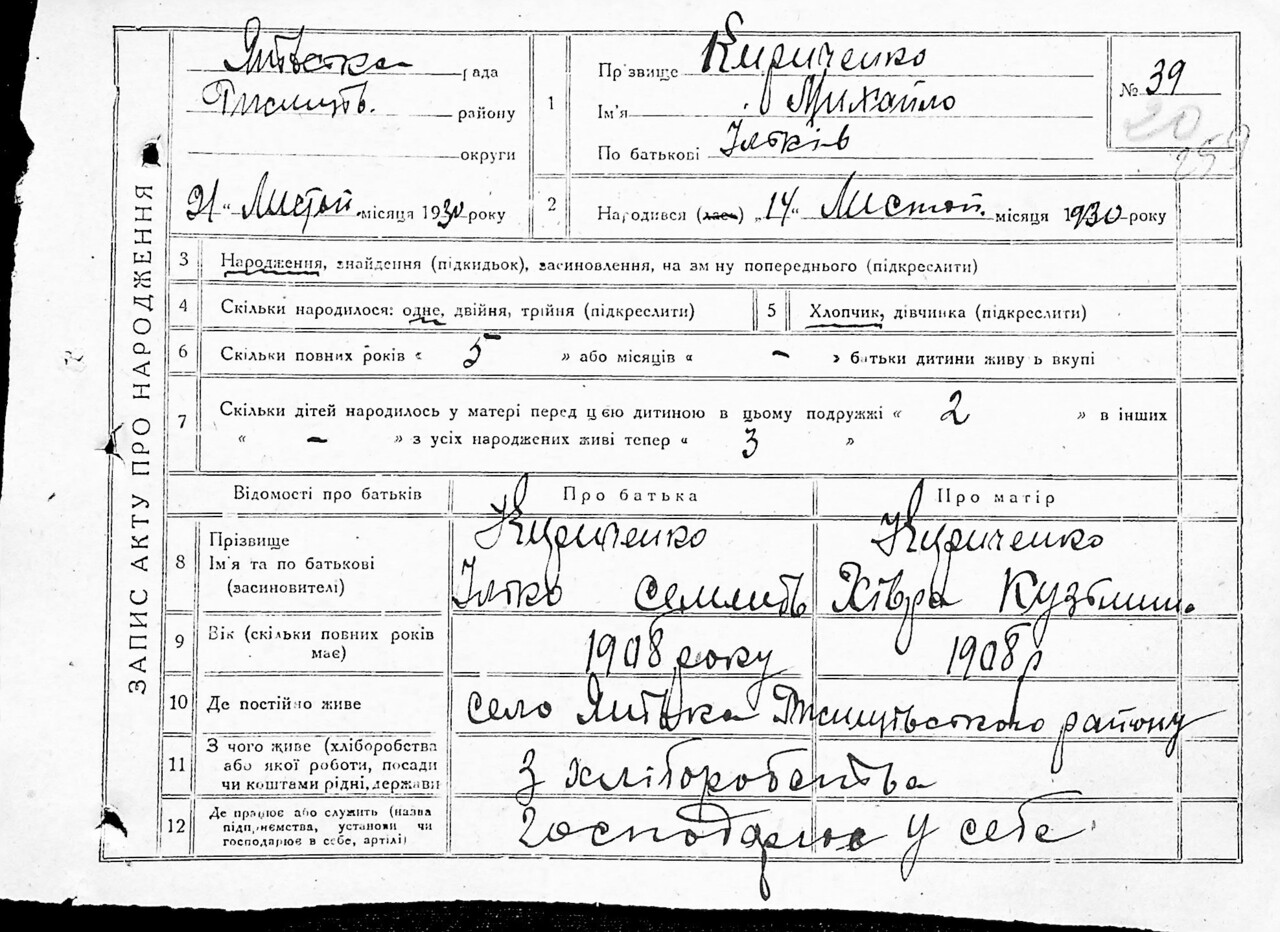 ЗАПИС АКТУ ПРО НАРОДЖЕННЯ
рада
району
округи
21 "Листоп. місяця 1930 року
1
Прізвище Кириченко
Ім'я Михайло
По батькові Ільків
№ 39
20
2
Народився (лась) „14" Листоп. місяця 1930 року
3
Народження, знайдення (підкидьок), засиновлення, на зміну попереднього (підкреслити)
4
Скільки народилося: одне, двійня, трійня (підкреслити)
5
Хлопчик, дівчинка (підкреслити)
6
Скільки повних років « 5 » або місяців « – » батьки дитини живуть вкупі
7
Скільки дітей народилось у матері перед цією дитиною в цьому подружжі « 2 » в інших
« – » з усіх народжених живі тепер « 3 »
Відомості про батьків
Про батька
Про матір
8
Прізвище
Ім'я та по батькові
(засиновителі)
Кириченко
Ілько
Кириченко
Хівря Кузьмин.
9
Вік (скільки повних років
має)
1908 року
1908 р
10
Де постійно живе
село району
11
З чого живе (хліборобства
або якої роботи, посади
чи коштами рідні, держави
З хліборобства
12
Де працює або служить (назва
підприємства, установи чи
господарює в себе, артілі)
Господарює у себе